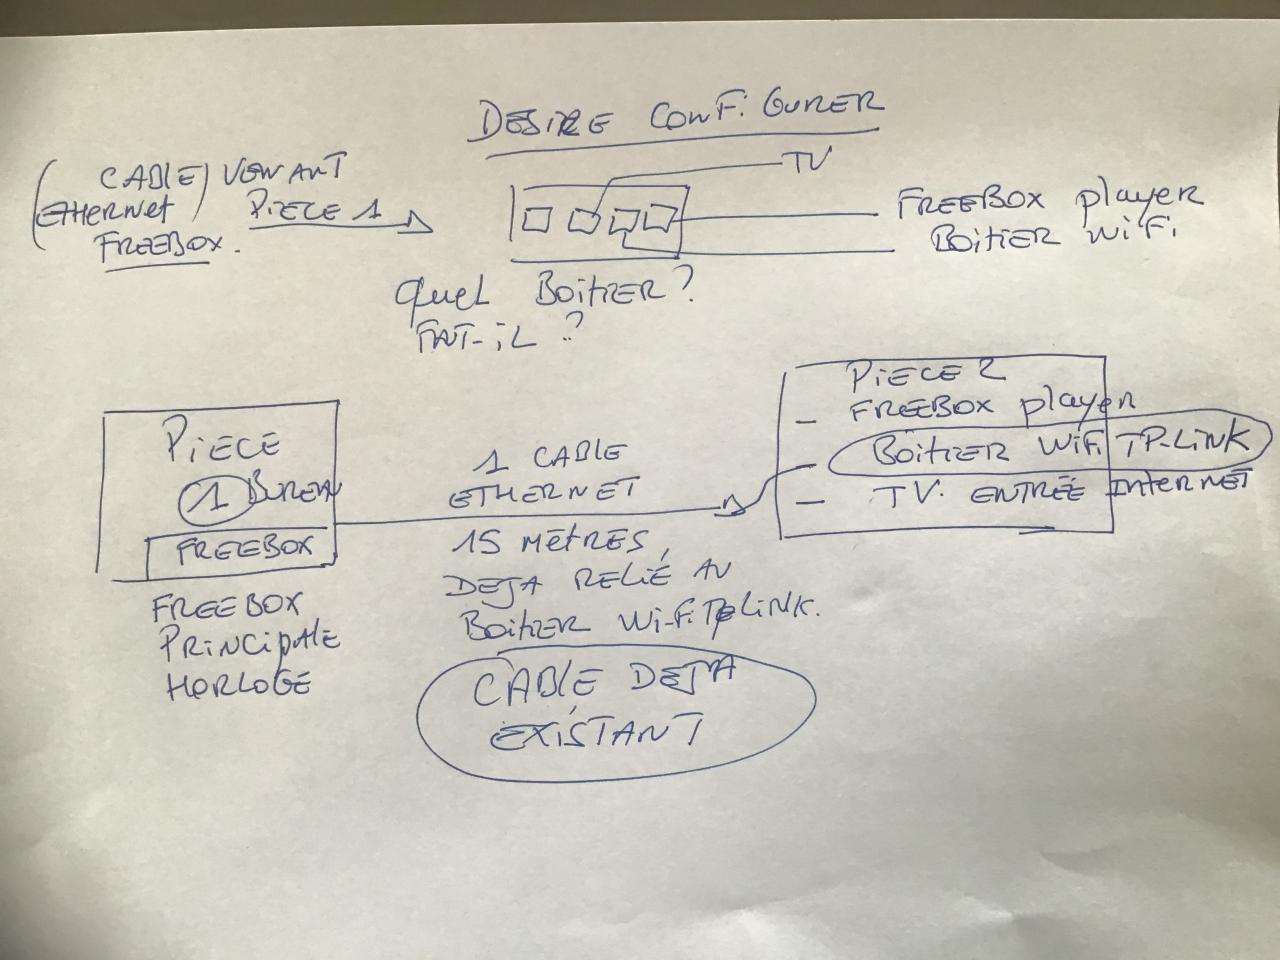 DESIRE CONFIGURER
(CABLE) VENANT
(ETHERNET) PIECE 1
FREEBOX.
TV
FREEBOX player
BOITIER WIFI
QUEL BOITIER?
FAT-IL ?
PIECE
1 BUREAU
FREEBOX
FREEBOX
PRINCIPALE
HORLOGE
1 CABLE
ETHERNET
15 METRES,
DEJA RELIÉ AU
BOITIER Wi-Fi TPLINK.
CABLE DEJA
EXISTANT
PIECE 2
- FREEBOX player
BOITIER WIFI TP-LINK
- TV. ENTRÉE INTERNET